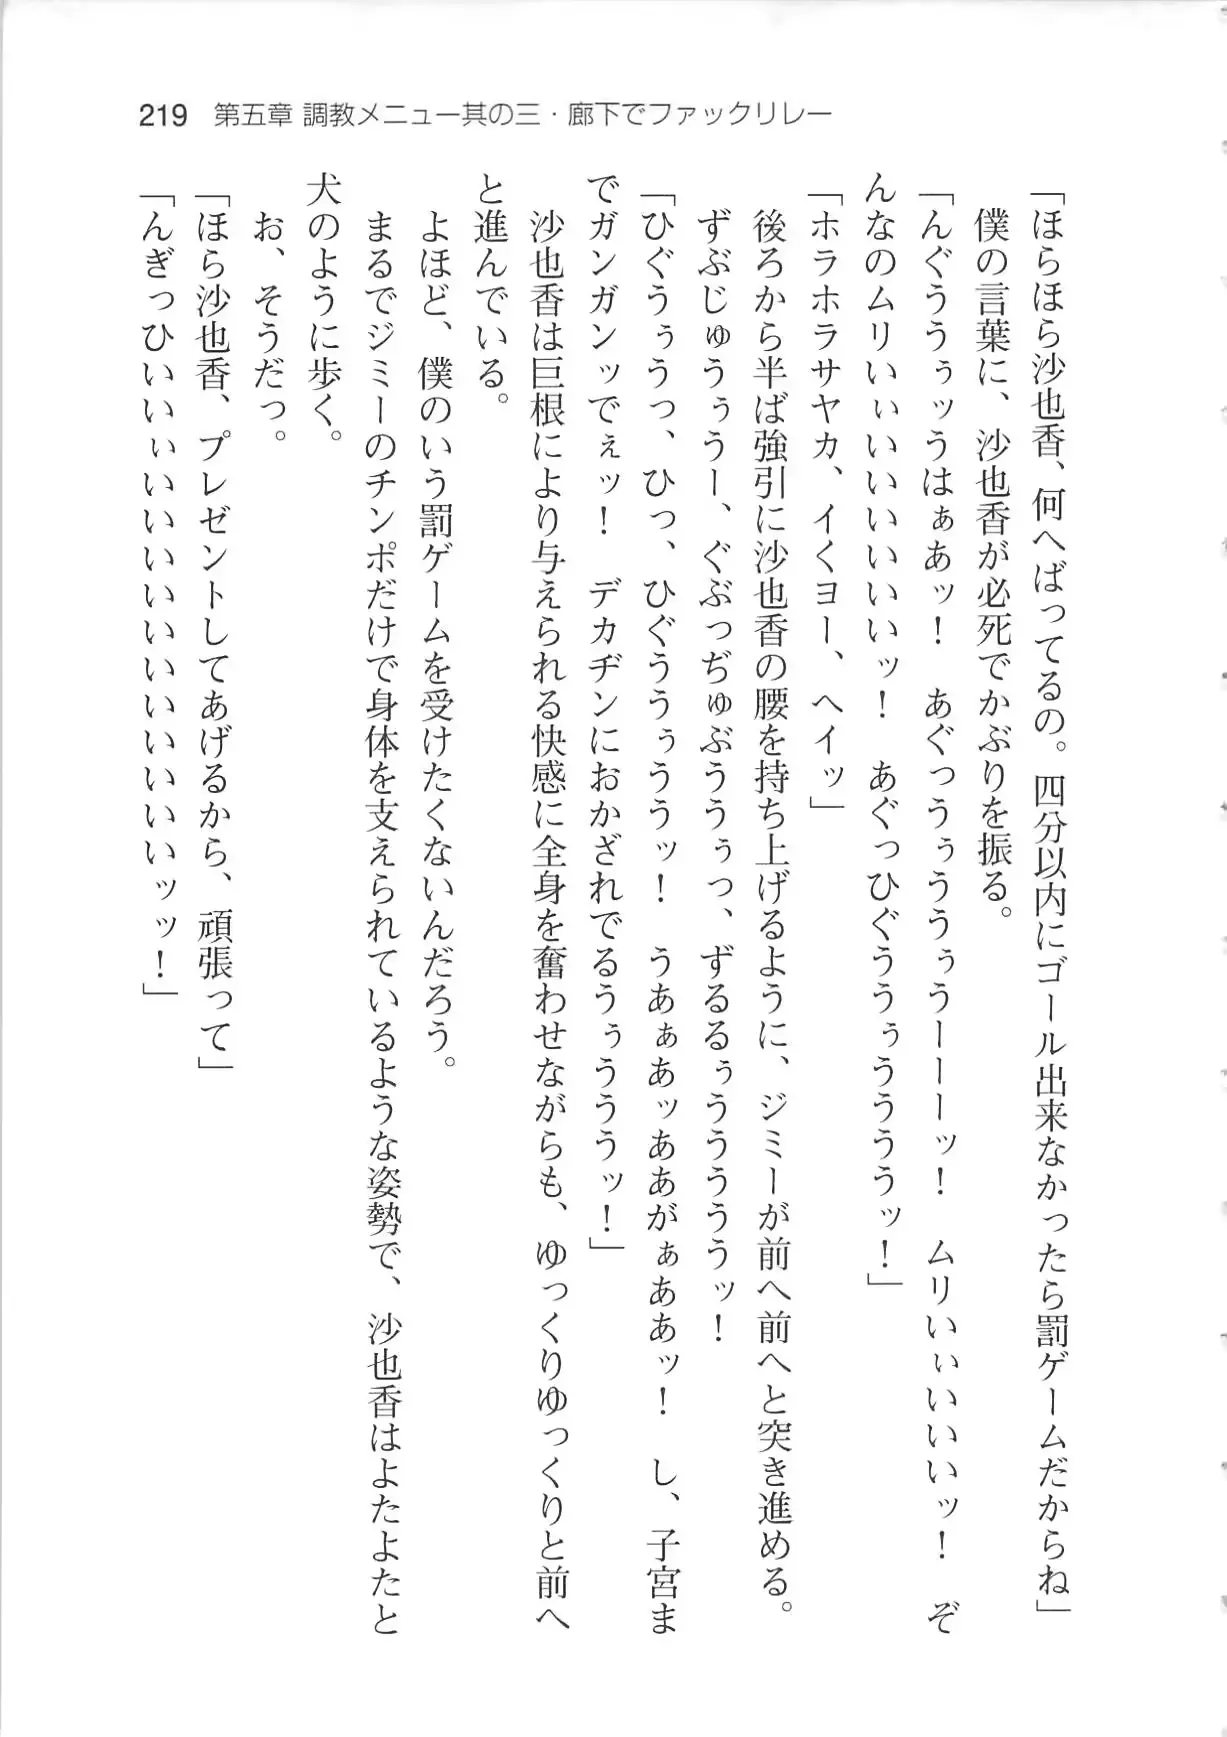 219 第五章 調教メニュー其の三・廊下でファックリレー
「ほらほら沙也香、何へばってるの。四分以内にゴール出来なかったら罰ゲームだからね」
僕の言葉に、沙也香が必死でかぶりを振る。
「んぐううぅッうはぁあッ！　あぐっうぅううぅうーーーッ！　ムリいぃいいいッ！　ぞ
んなのムリいぃいいいいいいッ！　あぐっひぐううぅううううッ！」
「ホラホラサヤカ、イくヨー、ヘイッ」
後ろから半ば強引に沙也香の腰を持ち上げるように、ジミーが前へ前へと突き進める。
ずぶじゅうぅうー、ぐぶっぢゅぶううぅっ、ずるるぅうううううッ！
「ひぐうぅうっ、ひっ、ひぐううぅううッ！　うあぁあッああがぁああッ！　し、子宮ま
でガンガンッでぇッ！　デカヂンにおかざれでるうぅうううッ！」
沙也香は巨根により与えられる快感に全身を奮わせながらも、ゆっくりゆっくりと前へ
と進んでいる。
よほど、僕のいう罰ゲームを受けたくないんだろう。
まるでジミーのチンポだけで身体を支えられているような姿勢で、沙也香はよたよたと
犬のように歩く。
お、そうだっ。
「ほら沙也香、プレゼントしてあげるから、頑張って」
「んぎっひいいぃいいいいいいいいいいいッッ！」